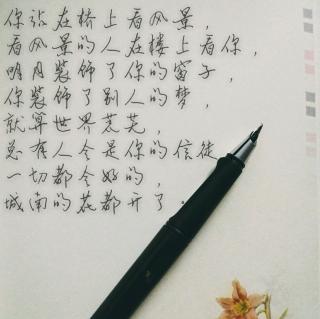 你站在桥上看风景，
看风景的人在楼上看你，
明月装饰了你的窗子，
你装饰了别人的梦，
就算世界荒芜，
总有人会是你的信徒
一切都会好的，
城南的花都开了．